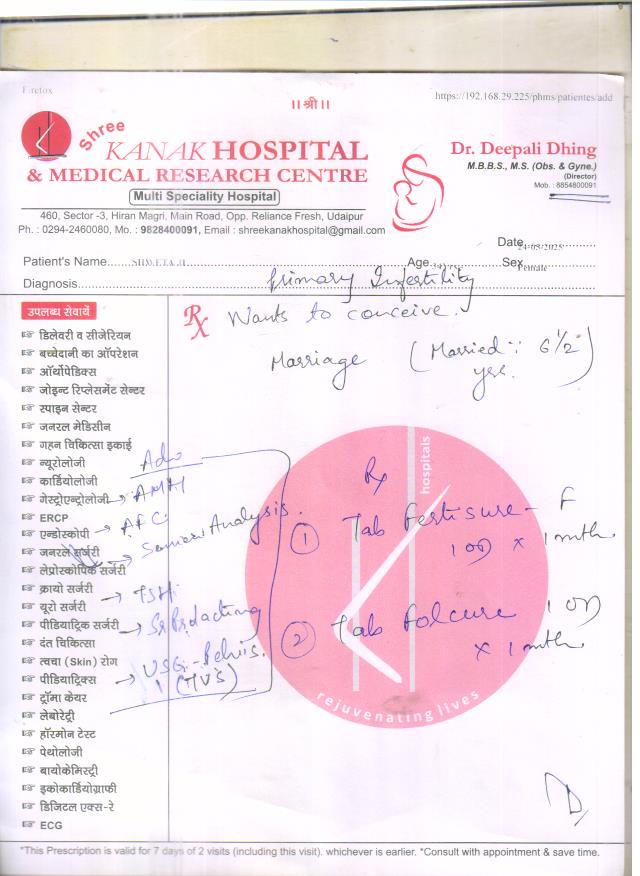 Firefox
https://192.168.29.225/phms/patientes/add
||श्री||
Shree
KANAK HOSPITAL
& MEDICAL RESEARCH CENTRE
Multi Speciality Hospital
460, Sector -3, Hiran Magri, Main Road, Opp. Reliance Fresh, Udaipur
Ph. : 0294-2460080, Mo. : 9828400091, Email : shreekanakhospital@gmail.com
Dr. Deepali Dhing
M.B.B.S., M.S. (Obs. & Gyne.)
(Director)
Mob. : 8854800091
Date 24-05-2025
Patient's Name SHWETA JI Age Sex Female
Diagnosis Primary Infertility
Rx Wants to conceive.
Marriage (Married :: 6 1/2 yrs.
उपलब्ध सेवायें
डिलेवरी व सीजेरियन
बच्चेदानी का ऑपरेशन
ऑर्थोपेडिक्स
जोइन्ट रिप्लेसमेंट सेन्टर
स्पाइन सेन्टर
जनरल मेडिसीन
गहन चिकित्सा इकाई
न्यूरोलोजी
कार्डियोलोजी
गेस्ट्रोएन्ट्रोलोजी
ERCP
एन्डोस्कोपी
जनरल सर्जरी
लेप्रोस्कोपिक सर्जरी
क्रायो सर्जरी
यूरो सर्जरी
पीडियाट्रिक सर्जरी
दंत चिकित्सा
त्वचा (Skin) रोग
पीडियाट्रिक्स
ट्रॉमा केयर
लेबोरेट्री
हॉरमोन टेस्ट
पेथोलोजी
बायोकेमिस्ट्री
इकोकार्डियोग्राफी
डिजिटल एक्स-रे
ECG
Adv
→ AMH
→ AFC
→ Semen Analysis.
→ TSH
→ Sr Prolactin
→ USG - Pelvis.
(TVS)
Rx
① Tab Fertisure - F
1 OD x 1 mth
② Tab Folcure 1 OD
x 1 mth
hospitals
rejuvenating lives
*This Prescription is valid for 7 days of 2 visits (including this visit). whichever is earlier. *Consult with appointment & save time.